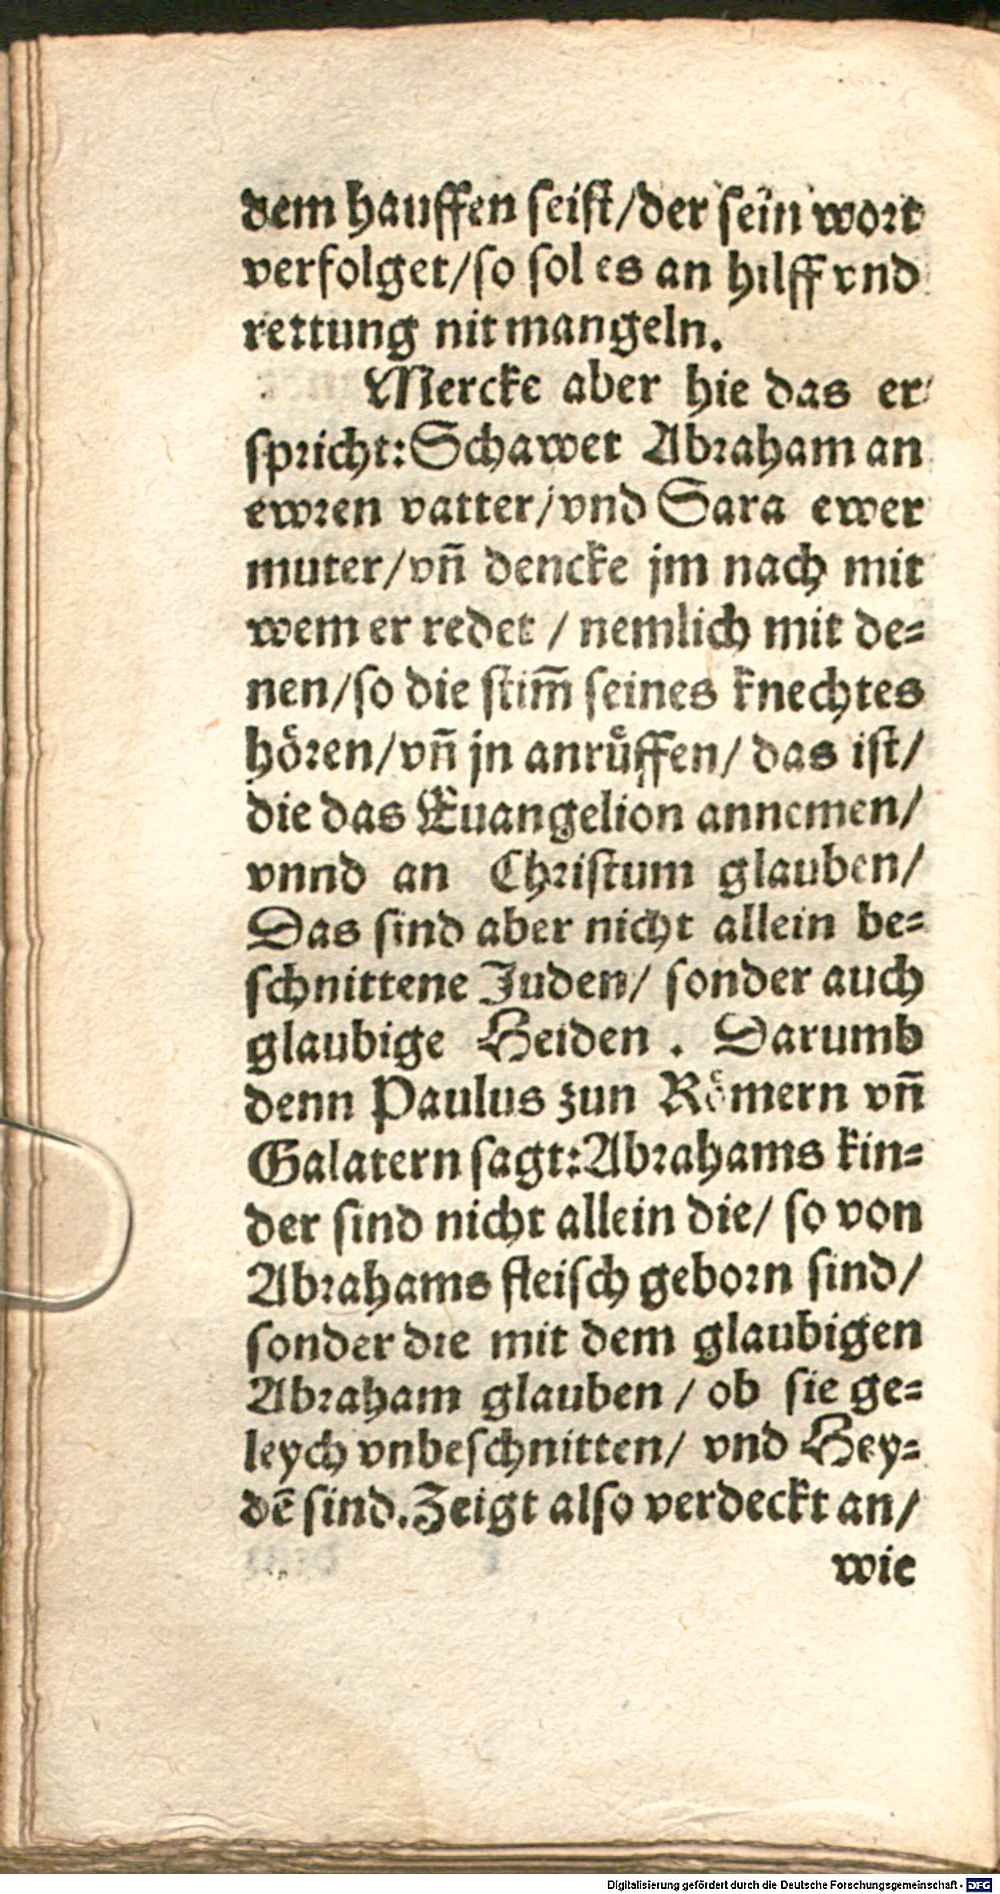 dem hauffen seist/der sein wort
verfolget/so sol es an hilff vnd
rettung nit mangeln.
Mercke aber hie das er
spricht: Schawet Abraham an
ewren vatter/vnd Sara ewer
muter/vn̄ dencke jm nach mit
wem er redet / nemlich mit de=
nen/so die stim̄ seines knechtes
hören/vn̄ jn anrůffen/ das ist/
die das Euangelion annemen/
vnnd an Christum glauben/
Das sind aber nicht allein be=
schnittene Juden/ sonder auch
glaubige Heiden . Darumb
denn Paulus zun Römern vn̄
Galatern sagt: Abrahams kin=
der sind nicht allein die/ so von
Abrahams fleisch geborn sind/
sonder die mit dem glaubigen
Abraham glauben / ob sie ge=
leych vnbeschnitten/ vnd Hey=
dē sind. Zeigt also verdeckt an/
wie
Digitalisierung gefördert durch die Deutsche Forschungsgemeinschaft - DFG